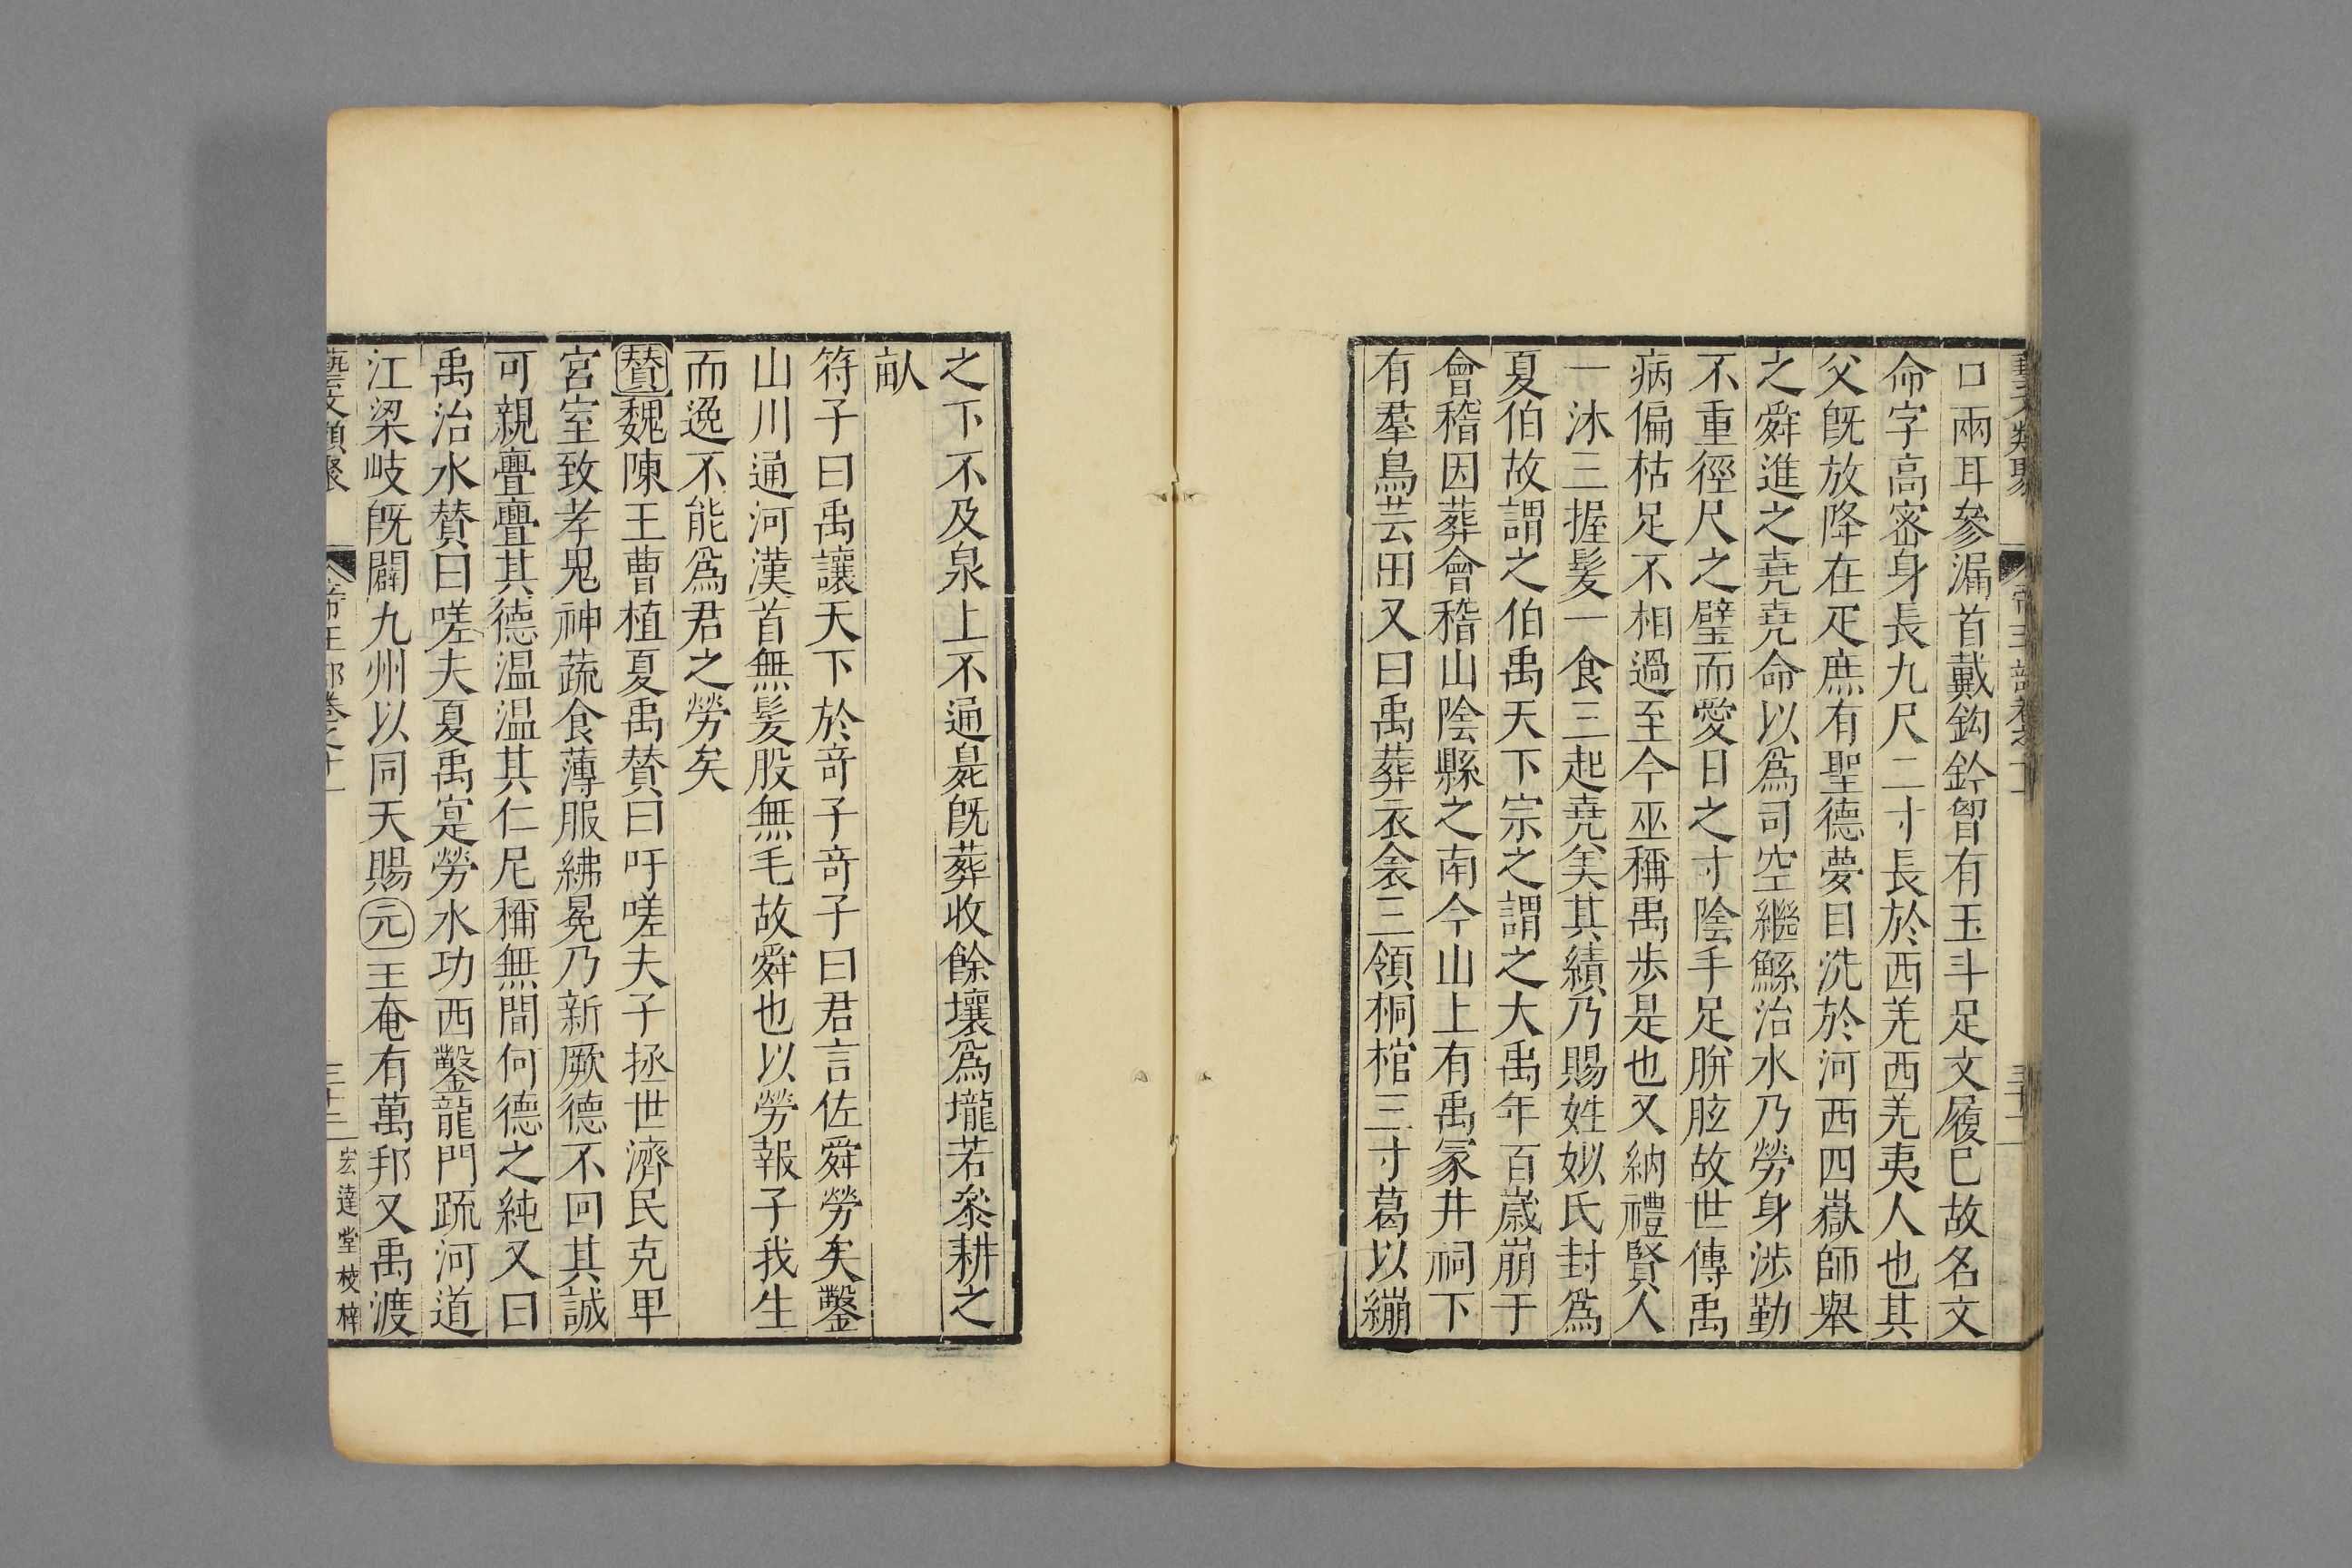 藝文類聚 帝王部卷之十一 三十二
口兩耳參漏首戴鈎鈐胷有玉斗足文履巳故名文
命字高宻身長九尺二寸長於西羌西羌夷人也其
父旣放降在疋庶有聖德夢目洗於河西四嶽師舉
之舜進之堯堯命以爲司空繼鯀治水乃勞身渉勤
不重徑尺之璧而愛日之寸陰手足胼胝故世傳禹
病偏枯足不相過至今巫稱禹步是也又納禮賢人
一沐三握髪一食三起堯美其績乃賜姓姒氏封爲
夏伯故謂之伯禹天下宗之謂之大禹年百歲崩于
會稽因葬會稽山陰縣之南今山上有禹冢井祠下
有羣鳥芸田又曰禹葬衣衾三領桐棺三寸葛以繃
之下不及泉上不通臰旣葬收餘壤爲壠若叅耕之
畝
符子曰禹讓天下於奇子奇子曰君言佐舜勞矣鑿
山川通河漢首無髪股無毛故舜也以勞報子我生
而逸不能爲君之勞矣
贊魏陳王曹植夏禹贊曰吁嗟夫子拯世濟民克卑
宮室致孝鬼神蔬食薄服紼冕乃新厥德不回其誠
可親亹亹其德温温其仁尼稱無間何德之純又曰
禹治水贊曰嗟夫夏禹寔勞水功西鑿龍門疏河道
江梁岐旣闢九州以同天賜元圭奄有萬邦又禹渡
藝文類聚 帝王部卷之十一 三十三 宏達堂校梓